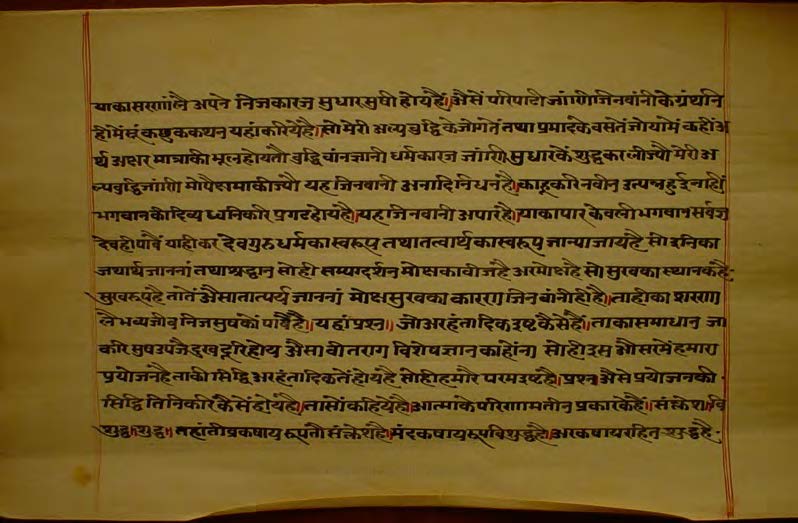 याकासरणांलै अपने निजकारज सुधारसुषी होयहैं॥ अैसें परिपाटी जांणीजिनवांनीकेग्रंथनि
हीमेंसूं कछुककथन यहांकरियेहै॥ सोमेरी अल्पबुद्धिकेजोगतें तथा प्रमादकेवसतें जोयामें कहींअ
र्थ अक्षर मात्राकी भूलहोयतौ बुद्धिवांनज्ञानी धर्मकारज जांणि सुधारकें शुद्धकरलीज्यौ मेरी अ
ल्पबुद्धिजांणि मोपैक्षमाकीज्यौ यह जिनवानी अनादिनिधनहै॥ काहूकरि नवीन उत्पन्नहुईनाहीं
भगवानकीदिव्य ध्वनिकरि प्रगटहोयहै॥ यहजिनवानी अपारहै॥ याकापार केवली भगवानसर्वज्ञ
देवहीपावैं याहीकर देवगुरुधर्मकास्वरूप तथातत्वार्थकास्वरूप जान्याजायहै सो इनिका
जथार्थ जाननां तथाश्रद्धान सोही सम्यग्दर्शन मोक्षकावीजहै अरमोक्षहै सो सुखकास्थानकहै
सुखरूपहै तातें अैसातात्पर्य जाननां मोक्षसुखका कारण जिनवांनीहीहै॥ ताहीका शरण
लै भव्यजीव निजसुषकों पावैहै॥ यहांप्रश्न॥ जोअरहंतादिकइष्टकैसेहैं॥ ताकासमाधान जा
करि सुषउपजै दुखदूरिहोय अैसा वीतराग विशेषज्ञानकाहोंना सोहीइस औसरमेंहमारा
प्रयोजनहै ताकी सिद्धि अरहंतादिकतेंहोयहै सोहीहमारै परमइष्टहै॥ प्रश्न अैसे प्रयोजनकी
सिद्धि तिनिकरि कैसेंहोयहै॥ तासोंकहियेहै॥ आत्माकेपरिणामतीन प्रकारकेहैं॥ संक्लेश॥ वि
शुद्ध॥ शुद्ध॥ तहांतीव्रकषायरूपतौ संक्लेशहै॥ मंदकषायरूपविशुद्धहै॥ अरकषायरहित शुद्धहै